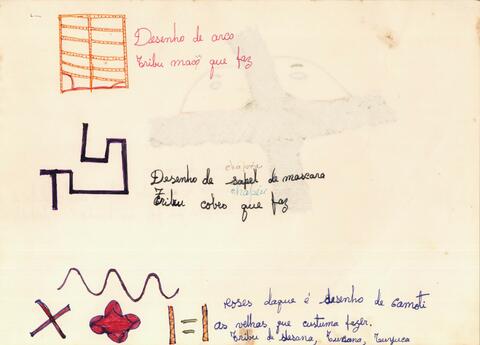 Desenho de arco
Tribu macô que faz
chapéu
Desenho de sapel de mascara
Tribu cobeo que faz
esses daque é desenho de Camoti
as velhas que custuma fazer.
Tribu de desana, Tucano, Tuyuca